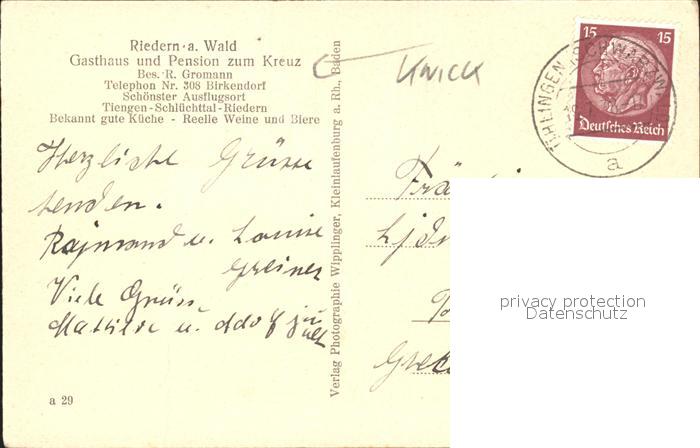 Riedern a. Wald
Gasthaus und Pension zum Kreuz
Bes. R. Gromann
Telephon Nr. 308 Birkendorf
Schönster Ausflugsort
Tiengen-Schlüchttal-Riedern
Bekannt gute Küche - Reelle Weine und Biere
Herzliche Grüsse
senden.
Rajmund u. Louise
Greiner
Viele Grüsse
Mathilde u.
a 29
Verlag Photographie Wipplinger, Kleinlaufenburg a. Rh., Baden
KWICK
15 15
Deutsches Reich
ÜHLINGEN (SCHWARZW
a
privacy protection
Datenschutz